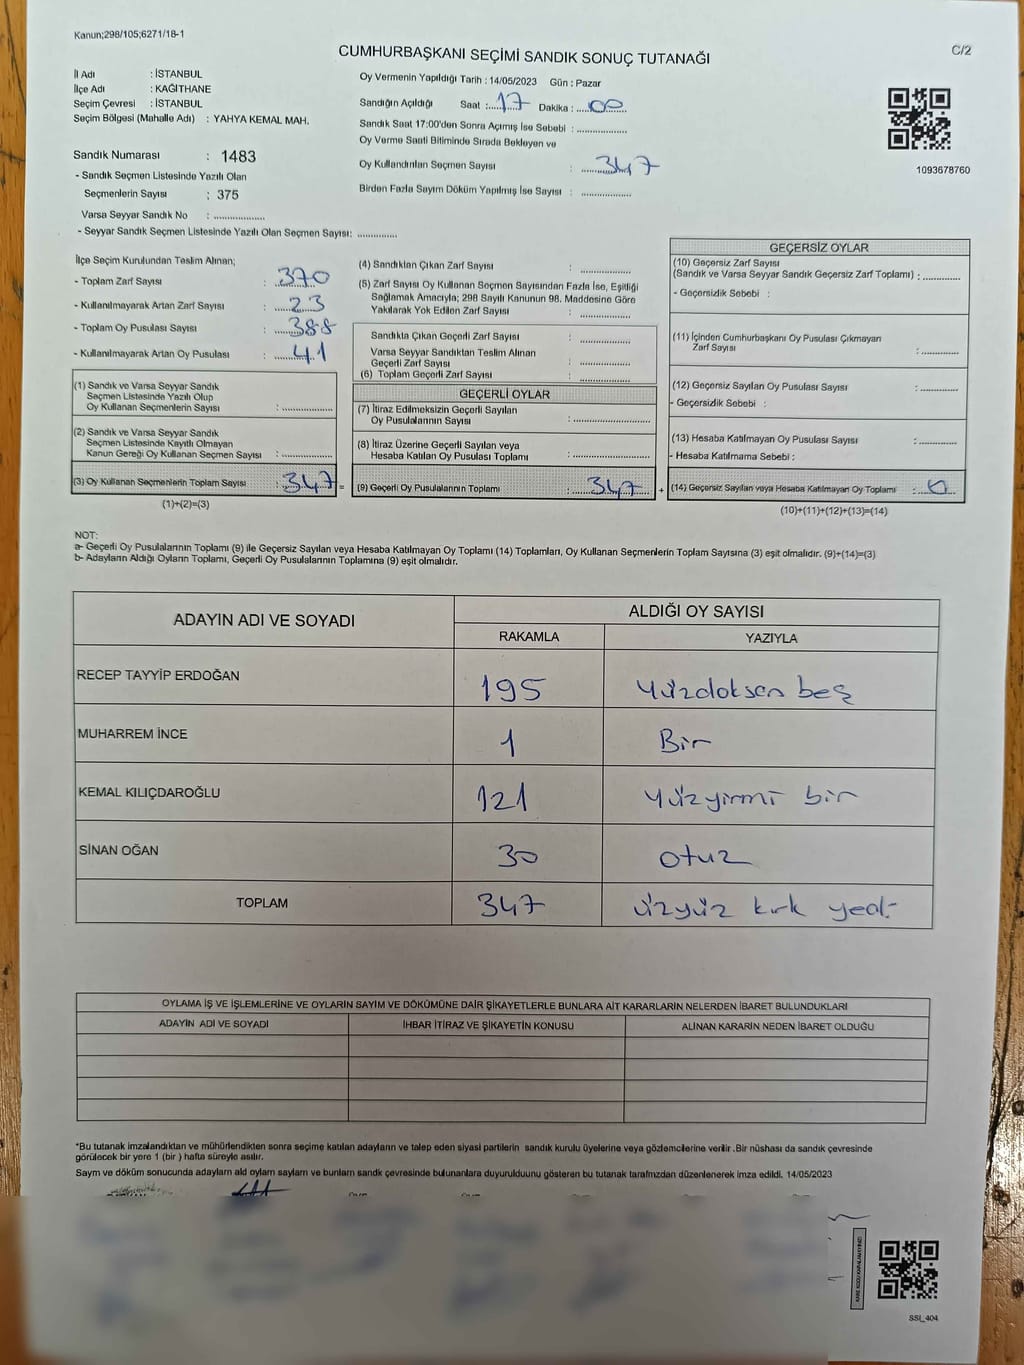 Kanun;298/105;6271/18-1
CUMHURBAŞKANI SEÇİMİ SANDIK SONUÇ TUTANAĞI
C/2
İl Adı : İSTANBUL
İlçe Adı : KAĞITHANE
Seçim Çevresi : İSTANBUL
Seçim Bölgesi (Mahalle Adı) : YAHYA KEMAL MAH.
Sandık Numarası : 1483
- Sandık Seçmen Listesinde Yazılı Olan
Seçmenlerin Sayısı : 375
Varsa Seyyar Sandık No : ................
- Seyyar Sandık Seçmen Listesinde Yazılı Olan Seçmen Sayısı: ............
Oy Vermenin Yapıldığı Tarih : 14/05/2023 Gün : Pazar
Sandığın Açıldığı Saat : 17 Dakika : 00
Sandık Saat 17:00'den Sonra Açımış İse Sebebi : ...............
Oy Verme Saati Bitiminde Sırada Bekleyen ve
Oy Kullandırılan Seçmen Sayısı : 347
Birden Fazla Sayım Döküm Yapılmış İse Sayısı : ...............
1093678760
İlçe Seçim Kurulundan Teslim Alınan;
- Toplam Zarf Sayısı : 370
- Kullanılmayarak Artan Zarf Sayısı : 23
- Toplam Oy Pusulası Sayısı : 388
- Kullanılmayarak Artan Oy Pusulası : 41
(1) Sandık ve Varsa Seyyar Sandık
Seçmen Listesinde Yazılı Olup
Oy Kullanan Seçmenlerin Sayısı : ...............
(2) Sandık ve Varsa Seyyar Sandık
Seçmen Listesinde Kayıtlı Olmayan
Kanun Gereği Oy Kullanan Seçmen Sayısı : ...............
(3) Oy Kullanan Seçmenlerin Toplam Sayısı : 347 =
(1)+(2)=(3)
(4) Sandıktan Çıkan Zarf Sayısı : ...............
(5) Zarf Sayısı Oy Kullanan Seçmen Sayısından Fazla İse, Eşitliği
Sağlamak Amacıyla; 298 Sayılı Kanunun 98. Maddesine Göre
Yakılarak Yok Edilen Zarf Sayısı : ...............
Sandıkta Çıkan Geçerli Zarf Sayısı : ...............
Varsa Seyyar Sandıktan Teslim Alınan
Geçerli Zarf Sayısı : ...............
(6) Toplam Geçerli Zarf Sayısı : ...............
GEÇERLİ OYLAR
(7) İtiraz Edilmeksizin Geçerli Sayılan
Oy Pusulalarının Sayısı : ...............
(8) İtiraz Üzerine Geçerli Sayılan veya
Hesaba Katılan Oy Pusulası Toplamı : ...............
(9) Geçerli Oy Pusulalarının Toplamı : 347 +
GEÇERSİZ OYLAR
(10) Geçersiz Zarf Sayısı
(Sandık ve Varsa Seyyar Sandık Geçersiz Zarf Toplamı) : ............
- Geçersizlik Sebebi :
(11) İçinden Cumhurbaşkanı Oy Pusulası Çıkmayan
Zarf Sayısı : ............
(12) Geçersiz Sayılan Oy Pusulası Sayısı : ............
- Geçersizlik Sebebi :
(13) Hesaba Katılmayan Oy Pusulası Sayısı : ............
- Hesaba Katılmama Sebebi :
(14) Geçersiz Sayılan veya Hesaba Katılmayan Oy Toplamı : 0
(10)+(11)+(12)+(13)=(14)
NOT:
a- Geçerli Oy Pusulalarının Toplamı (9) ile Geçersiz Sayılan veya Hesaba Katılmayan Oy Toplamı (14) Toplamları, Oy Kullanan Seçmenlerin Toplam Sayısına (3) eşit olmalıdır. (9)+(14)=(3)
b- Adayların Aldığı Oyların Toplamı, Geçerli Oy Pusulalarının Toplamına (9) eşit olmalıdır.
ADAYIN ADI VE SOYADI ALDIĞI OY SAYISI
RAKAMLA YAZIYLA
RECEP TAYYİP ERDOĞAN 195 Yüzdoksan beş
MUHARREM İNCE 1 Bir
KEMAL KILIÇDAROĞLU 121 Yüzyirmi bir
SİNAN OĞAN 30 Otuz
TOPLAM 347 üzyüz kırk yedi
OYLAMA İŞ VE İŞLEMLERİNE VE OYLARIN SAYIM VE DÖKÜMÜNE DAİR ŞİKAYETLERLE BUNLARA AİT KARARLARIN NELERDEN İBARET BULUNDUKLARI
ADAYIN ADI VE SOYADI İHBAR İTİRAZ VE ŞİKAYETİN KONUSU ALINAN KARARIN NEDEN İBARET OLDUĞU
*Bu tutanak imzalandıktan ve mühürlendikten sonra seçime katılan adayların ve talep eden siyasi partilerin sandık kurulu üyelerine veya gözlemcilerine verilir .Bir nüshası da sandık çevresinde
görülecek bir yere 1 (bir ) hafta süreyle asılır.
Sayım ve döküm sonucunda adayların ald oyların sayları ve bunların sandık çevresinde bulunanlara duyurulduunu gösteren bu tutanak tarafmzdan düzenlenerek imza edildi. 14/05/2023
SSI_404